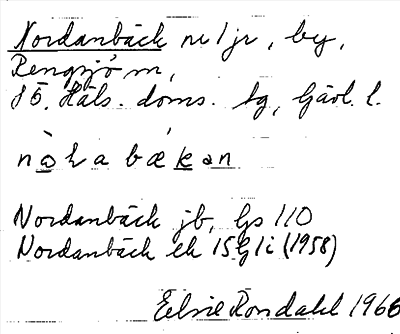 Nordanbäck nr 1 jr, by,
Rengsjö sn,
SÖ. Häls. doms. sg, Gävl. l.
nola bækan
Nordanbäck jb, Gs 110
Nordanbäck ek 15G li (1958)
Elsie Rondahl 1966